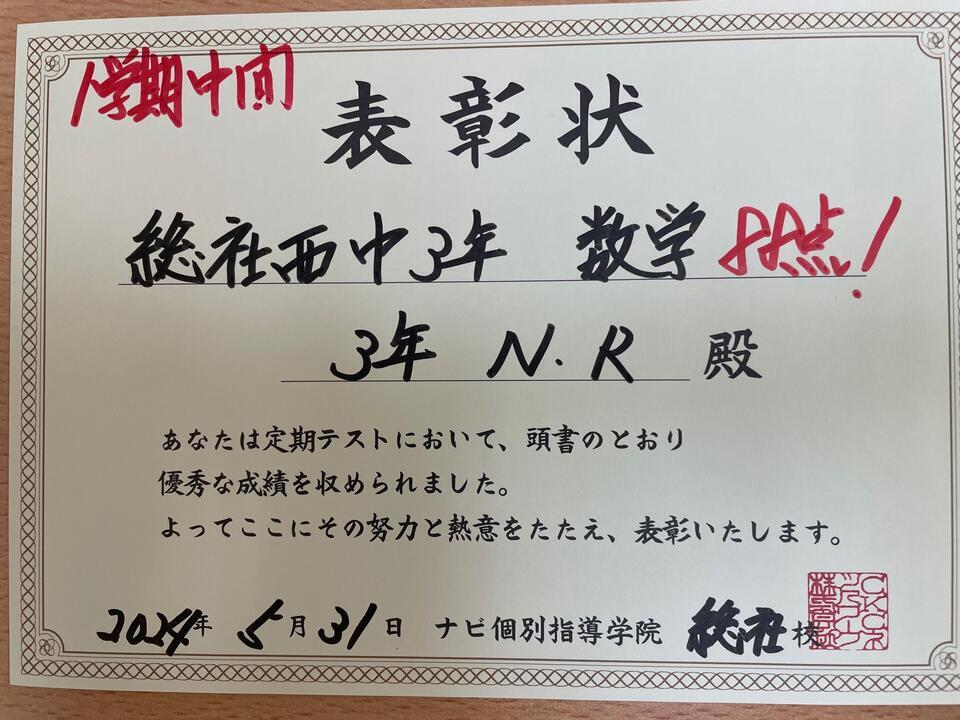 1学期中間
表彰状
総社西中3年 数学 88点!
3年 N.R 殿
あなたは定期テストにおいて、頭書のとおり
優秀な成績を収められました。
よってここにその努力と熱意をたたえ、表彰いたします。
2024年 5月31日 ナビ個別指導学院 総社校